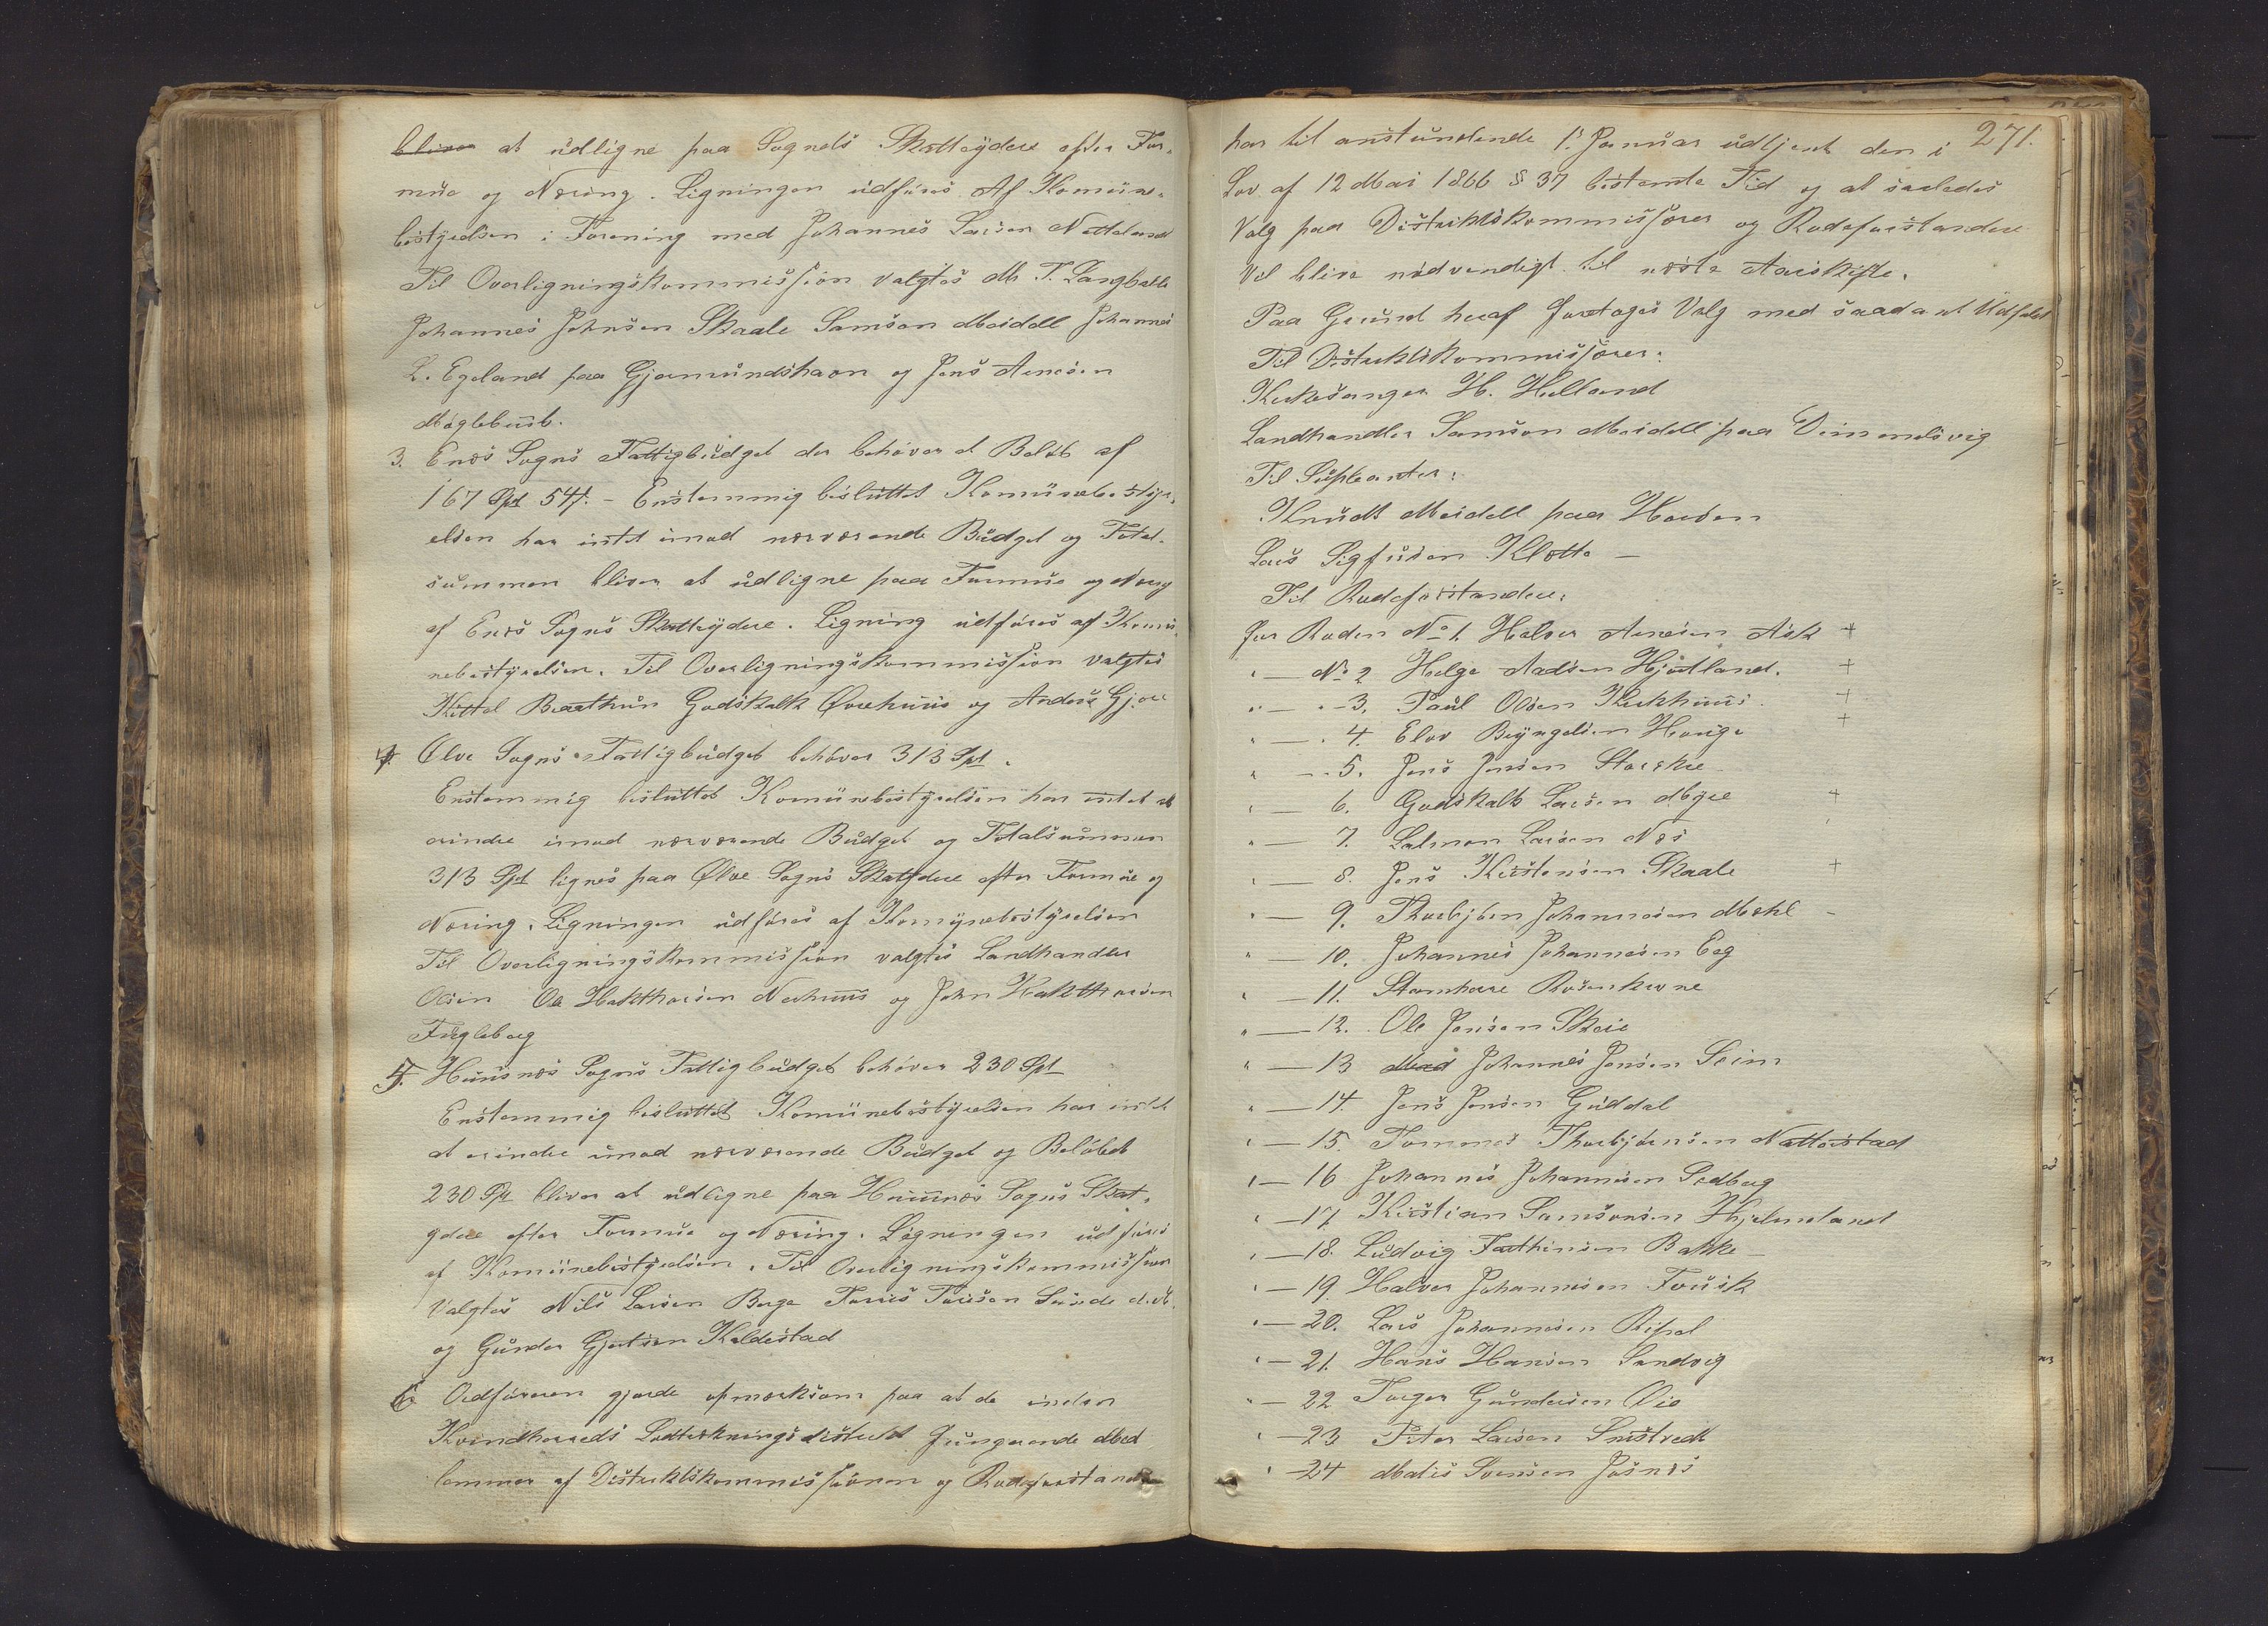 bliver at udligne paa Sognets Skatteydere efter For-
mue og Næring. Ligningen udføres Af Komune-
bestyrelsen i Forening med Johannes Larsen Nætteland
Til Overligningskommission valgtes M. T. Langballe
Johannes Johnsen Skaale Samson Meidell Johannes
L. Egeland paa Gjermundshavn og Jens Arnesen
Møglebust.
3. Enæs Sogns Fattigbudget der behøver et Beløb af
167 Spd 54 s. - Enstemmig besluttet Komunebestyr-
elsen har intet imod nærværende Budget og Total-
summen bliver at udligne paa Formue og Næring
af Enæs Sogns Skatteydere. Ligning udføres af Komu-
nebestyrelsen. Til Overligningskommission valgtes
Kittel Braathun Godskalk Øvrehuus og Anders Gjøre
4. Ølve Sogns Fattigbudget behøver 313 Spd.
Enstemmig besluttet Komunebestyrelsen har intet at
erindre imod nærværende Budget og Totalsummen
313 Spd lignes paa Ølve Sogns Skatydere efter Formue og
Næring. Ligningen udføres af Komunebestyrelsen
Til Overligningskommission valgtes Landhandler
Olsen Ole Hakthorsen Nerhuus og John Hakthorsen
Fugleberg
5. Huusnæs Sogns Fattigbudget behøver 230 Spd
Enstemmig besluttet Komunebestyrelsen har intet
at erindre imod nærværende Budget og Beløbet
230 Spd bliver at udligne paa Huusnæs Sogns Skat-
ydere efter Formue og Næring. Ligningen udføres
af Komunebestyrelsen. Til Overligningskommission
Valgtes Nils Larsen Berge Tørris Tørisen Sunde
og Gunder Gjertsen Kaldestad
6 Ordføreren gjorde opmærksom paa at de inden
Kvindherreds Lodtrækningsdistrikt fungerende Med-
lemmer af Distriktskommissionen og Rodeforstandere
271.
har til anstundende 1. Januar udtjent den i
Lov af 12 Mai 1866 § 37 bestemte Tid og at saaledes
Valg paa Distriktskommissærer og Rodeforstandere
Vil blive nødvendigt til næste Aarskifte.
Paa Grund heraf foretoges Valg med saadant Udfald
Til Distriktskommissærer:
Kirkesanger H. Helland
Landhandler Samson Meidell paa Dimmelsvig
Til Supleanter:
Knudt Meidell paa Hovden
Lars Sigfusen Kløtte —
Til Rodeforstandere:
For Roden No 1. Halvor Arnesen Ask +
" — No 2 Helge Aadsen Hjortland. +
" — " - 3. Paul Olsen Kirkhuus. +
" — " 4. Elov Bryngelsen Hauge +
" — - 5. Jens Jensen Storskre
" — 6. Godskalk Larsen Myre +
" — 7. Salmon Larsen Næs
" — 8. Jens Kristensen Skaale +
" — 9. Thorbjørn Johannesen Mehl -
" — 10. Johannes Johannesen Eeg
" — 11. Stamhuse Rosenkrone
" — 12. Ole Jensen Skeie
" — 13 Mad Johannes Jensen Seim
" — 14. Jens Jensen Guddal
" — 15. Tommes Thorbjørnsen Nattestad
" — 16 Johannes Johannesen Sedberg
" — 17. Kristian Samsonsen Hjelmeland
" — 18. Ludvig Fatthinsen Bakke —
" — 19. Halvor Johannesen Tvesk
" — 20. Lars Johannesen Ripel
" — 21. Hans Hansen Sandvig
" — 22 Torger Gundersen Øie
" — 23 Peter Larsen Snistvedt
" — 24 Matis Svensen Josnæs